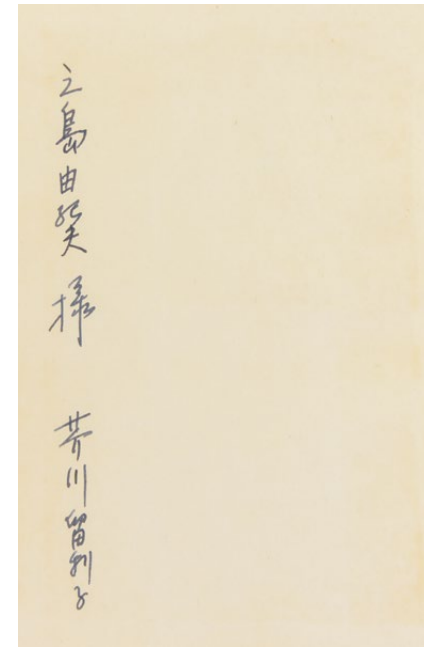 三島由紀夫様 芥川留利子